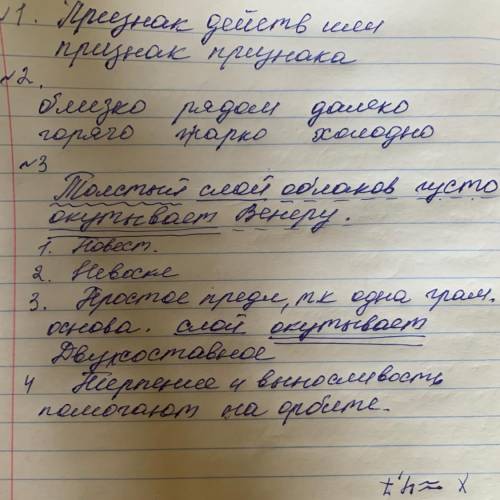 №1. Признак действ или
признак признака
№2.
близко рядом далеко
горячо жарко холодно
№3
Толстый слой облаков густо
окутывает Венеру.
1. Повест.
2. Невоскл
3. Простое предл, тк одна грам.
основа. слой окутывает
Двухсоставное
4 Терпение и выносливость
помогают на орбите.